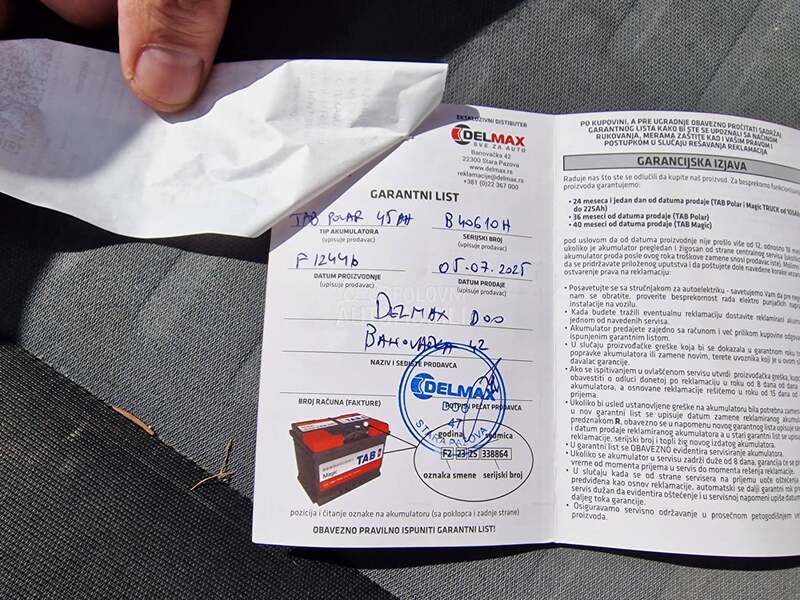 EKSKLUZIVNI DISTRIBUTER
DELMAX
SVE ZA AUTO
Banovačka 42
22300 Stara Pazova
www.delmax.rs
reklamacije@delmax.rs
+381 (0)22 367 000
GARANTNI LIST
TAB POLAR 45AH
B40610H
TIP AKUMULATORA
(upisuje prodavac)
SERIJSKI BROJ
(upisuje prodavac)
F12446
05.07.2025
DATUM PROIZVODNJE
(upisuje prodavac)
DATUM PRODAJE
(upisuje prodavac)
DELMAX DOO
42
NAZIV I SEDIŠTE PRODAVCA
DELMAX
DOO
47
STARA PAZOVA
BROJ RAČUNA (FAKTURE)
PEČAT PRODAVCA
TAB
Magic
godina
sedmica
F2 23 25 338864
oznaka smene
serijski broj
pozicija i čitanje oznake na akumulatoru (sa poklopca i zadnje strane)
OBAVEZNO PRAVILNO ISPUNITI GARANTNI LIST!
PO KUPOVINI, A PRE UGRADNJE OBAVEZNO PROČITATI SADRŽAJ
GARANTNOG LISTA KAKO BI STE SE UPOZNALI SA NAČINOM
RUKOVANJA, MERAMA ZAŠTITE KAO I VAŠIM PRAVOM I
POSTUPKOM U SLUČAJU REŠAVANJA REKLAMACIJA
GARANCIJSKA IZJAVA
Raduje nas što ste se odlučili da kupite naš proizvod. Za besprekorno
proizvoda garantujemo:
• 24 meseca i jedan dan od datuma prodaje (TAB Polar i Magic TRUCK od
do 225Ah)
• 36 meseci od datuma prodaje (TAB Polar)
• 40 meseci od datuma prodaje (TAB Magic)
pod uslovom da od datuma proizvodnje nije prošlo više od 12, odnosno 18
ukoliko je akumulator pregledan i žigosan od strane centralnog servisa
akumulator proda posle ovog roka troškove zamene snosi prodavac
da se pridržavate priloženog uputstva i da poštujete dole navedene
ostvarenje prava na reklamaciju:
• Posavetujte se sa stručnjakom za autoelektriku - savetujemo Vam da pre
nam se obratite, proverite besprekornost rada elektro punjačkih
instalacije na vozilu.
• Kada budete tražili eventualnu reklamaciju dostavite reklamirani
jednom od navedenih servisa.
• Akumulator predajete zajedno sa računom i već prilikom kupovine
ispunjenim garantnim listom.
• U slučaju proizvođačke greške koja bi se dokazala u garantnom roku
popravke akumulatora ili zamene novim, terete uvoznika koji je u ovom
davalac garancije.
• Ako se ispitivanjem u ovlašćenom servisu utvrdi proizvođačka greška,
obavestiti o odluci donetoj po reklamaciji u roku od 8 dana od dana
akumulatora, a osnovane reklamacije rešićemo u roku od 15 dana od
prijema.
• Ukoliko bi usled ustanovljene greške na akumulatoru bila potrebna
u nov garantni list se upisuje datum zamene reklamiranog
predznakom R, obzirom se u napomenu novog garantnog lista upisuje
i datum prodaje reklamiranog akumulatora a u stari garantni list se upisuje
reklamacije, serijski broj i topli žig novog izdatog akumulatora.
• U garantni list se OBAVEZNO evidentira servisiranje akumulatora.
• Ukoliko se akumulator u servisu zadrži duže od 8 dana, garancija će se
vreme od momenta prijema u servis do momenta rešenja reklamacije.
• U slučaju kada se od strane servisera na prijemu uoče oštećenja
predviđena kao osnov reklamacije, automatski se dalji garantni rok
servis dužan da evidentira oštećenje i u servisnoj napomeni upiše datum
daljeg toka garancije.
• Osiguravamo servisno održavanje u prosečnom petogodišnjem
proizvoda.